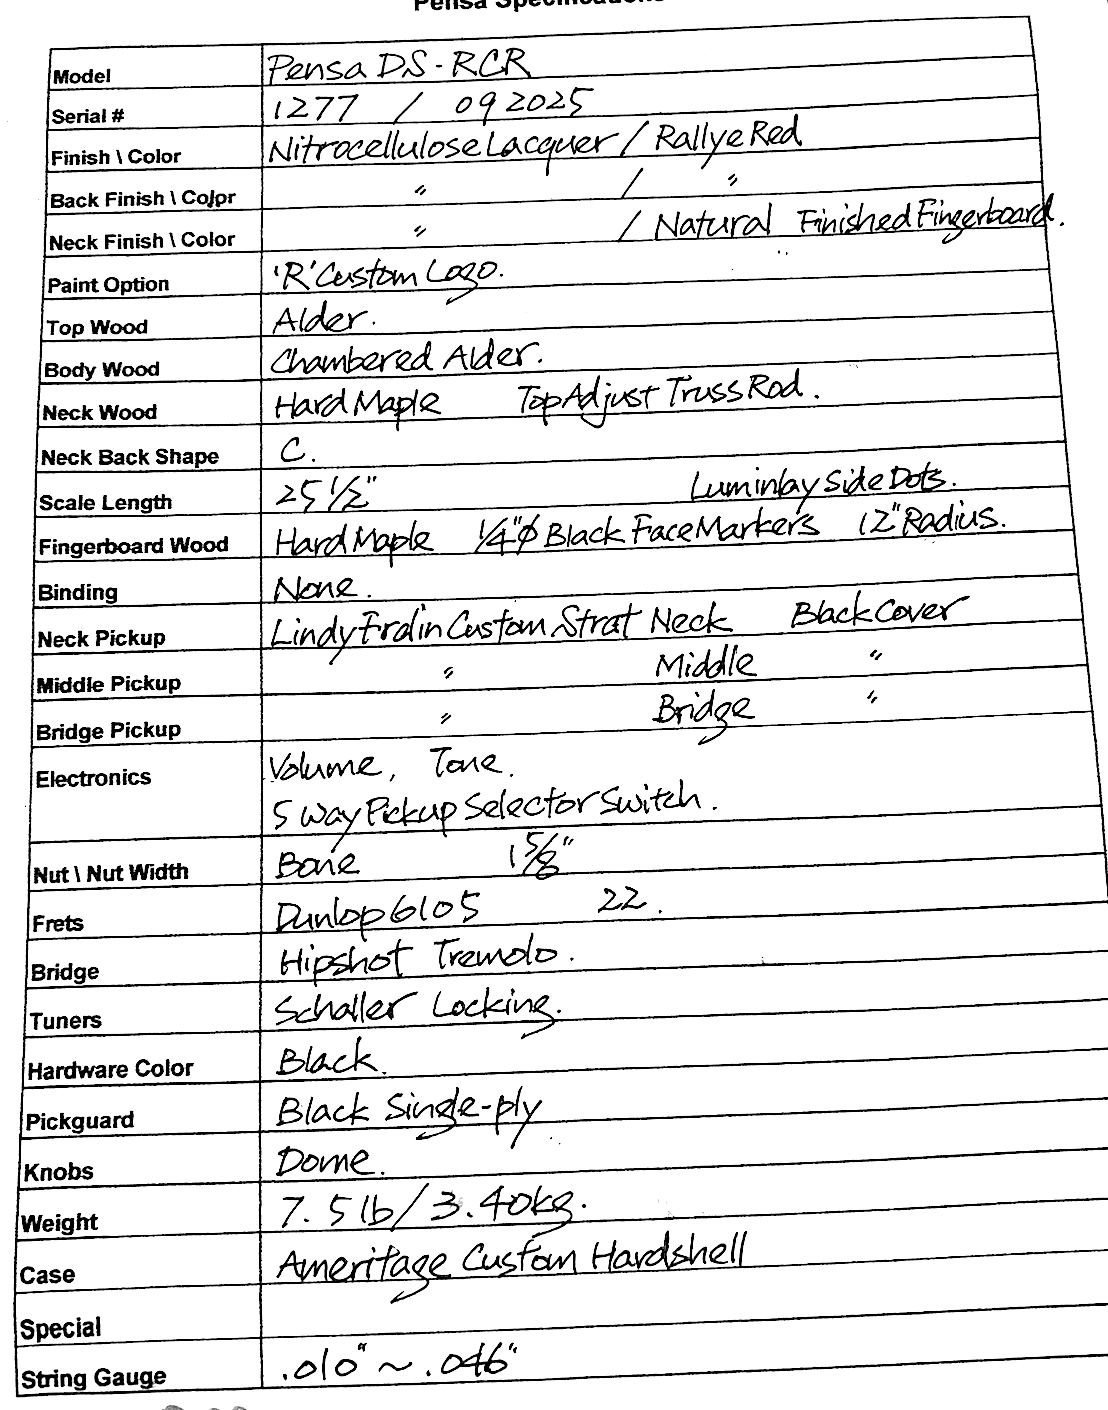 Pensa Specifications
Model Pensa DS-RCR
Serial # 1277 / 092025
Finish \ Color Nitrocellulose Lacquer / Rallye Red
Back Finish \ Color " / "
Neck Finish \ Color " / Natural Finished Fingerboard.
Paint Option 'R' Custom Logo.
Top Wood Alder.
Body Wood Chambered Alder.
Neck Wood Hard Maple Top Adjust Truss Rod.
Neck Back Shape C.
Scale Length 25 1/2" Luminlay Side Dots.
Fingerboard Wood Hard Maple 1/4"ø Black Face Markers 12" Radius.
Binding None.
Neck Pickup Lindy Fralin Custom Strat Neck Black Cover
Middle Pickup " Middle "
Bridge Pickup " Bridge "
Electronics Volume, Tone.
5 Way Pickup Selector Switch.
Nut \ Nut Width Bone 1 5/8"
Frets Dunlop 6105 22.
Bridge Hipshot Tremolo.
Tuners Schaller Locking.
Hardware Color Black.
Pickguard Black Single-ply
Knobs Dome.
Weight 7.5 lb / 3.40kg.
Case Ameritage Custom Hardshell
Special
String Gauge .010" ~ .046"